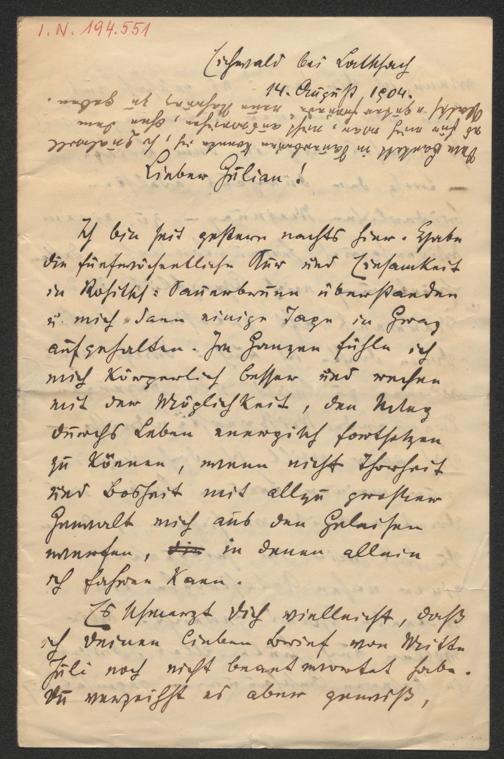 I. N. 194.551
Eichwald bei Lattsach
14. August 1904.
Lieber Julian!
Ich bin seit gestern nachts hier. Habe
die fünfwöchentliche Kur und Einsamkeit
in Rohitsch-Sauerbrunn überstanden
u. mich dann einige Tage in Graz
aufgehalten. Im Ganzen fühle ich
mich körperlich besser und rechne
mit der Möglichkeit, den Weg
durchs Leben energisch fortsetzen
zu können, wenn nicht Thorheit
und Bosheit mit allzu grosser
Gewalt mich aus den Geleisen
werfen, in denen allein
ich fahren kann.
Es schmerzt Dich vielleicht, daß
ich Deinen lieben Brief von Mitte
Juli noch nicht beantwortet habe.
Du verzeihst es aber gewiß,